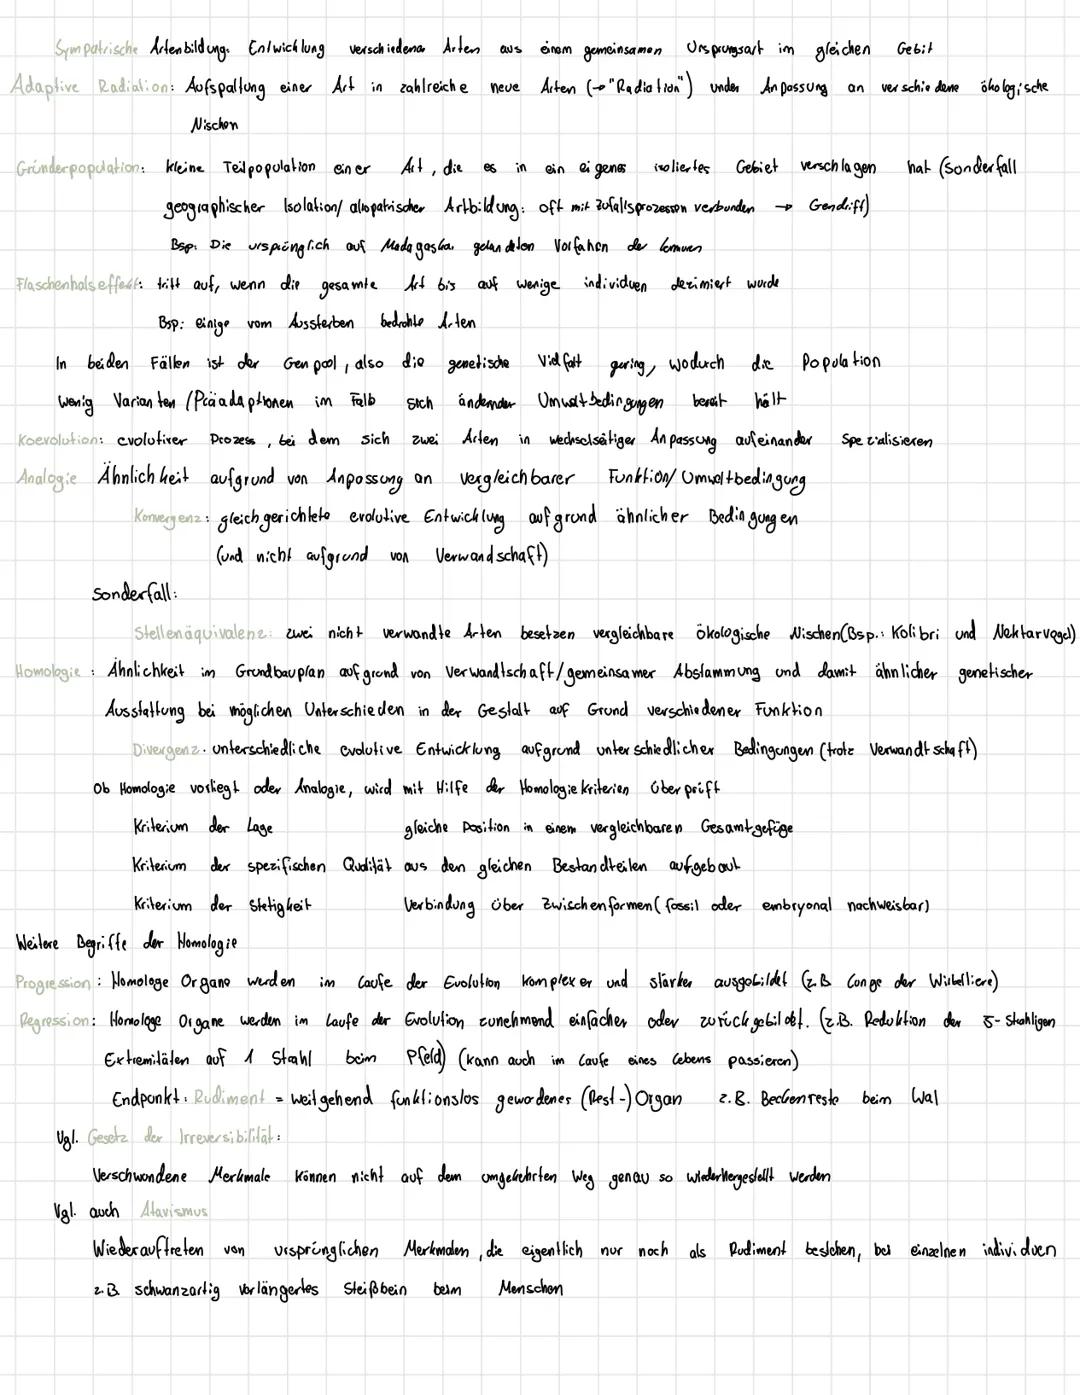 Sympatrische Artenbildung: Entwicklung verschiedener Arten aus einem gemeinsamen Ursprungsart im gleichen Gebit
Adaptive Radiation: Aufspaltung einer Art in zahlreiche neue Arten (→"Radiation") under Anpassung an verschiedene ökologische
Nischen
Gründerpopulation: kleine Teilpopulation einer Art, die es in ein eigenes isoliertes Gebiet verschlagen hat (Sonderfall
geographischer Isolation/ allopatrischer Artbildung: oft mit Zufallsprozessen verbunden → Gendrift)
Bsp: Die ursprünglich auf Madagaskar gelandeten Vorfahren der Lemuren
Flaschenhalseffekt: tritt auf, wenn die gesamte Art bis auf wenige individuen dezimiert wurde
Bsp: einige vom Aussterben bedrohte Arten
In beiden Fällen ist der Genpool, also die genetische Vielfalt gering, wodurch die Population
wenig Varianten (Präadaptionen im Falb sich ändernder Umweltbedingungen bereit hält
Koevolution: evolutiver Prozess, bei dem sich zwei Arten in wechselseitiger Anpassung aufeinander spezialisieren
Analogie Ähnlichkeit aufgrund von Anpassung an vergleichbarer Funktion/Umweltbedingung
Konvergenz: gleichgerichtete evolutive Entwicklung aufgrund ähnlicher Bedingungen
(und nicht aufgrund von Verwandschaft)
Sonderfall:
Stellenäquivalenz: zwei nicht verwandte Arten besetzen vergleichbare ökologische Nischen(Bsp.: Kolibri und Nektarvogel)
Homologie: Ähnlichkeit im Grundbauplan aufgrund von Verwandtschaft/gemeinsamer Abstammung und damit ähnlicher genetischer
Ausstattung bei möglichen Unterschieden in der Gestalt auf Grund verschiedener Funktion
Divergenz: unterschiedliche evolutive Entwicklung aufgrund unterschiedlicher Bedingungen (trotz Verwandtschaft)
Ob Homologie vorliegt oder Analogie, wird mit Hilfe der Homologiekriterien überprüft
Kriterium der Lage gleiche Position in einem vergleichbaren Gesamtgefüge
Kriterium der spezifischen Qualität aus den gleichen Bestandteilen aufgebaut
Kriterium der Stetigkeit Verbindung über Zwischenformen (fossil oder embryonal nachweisbar)
Weitere Begriffe der Homologie
Progression: Homologe Organe werden im Laufe der Evolution komplexer und stärker ausgebildet (z.B Lunge der Wirbeltiere)
Regression: Homologe Organe werden im Laufe der Evolution zunehmend einfacher oder zurückgebildet. (z.B. Reduktion der 5-Stahligen
Extremitäten auf 1 Strahl beim Pferd) (kann auch im Laufe eines Lebens passieren)
Endpunkt: Rudiment = weitgehend funktionslos gewordenes (Rest-)Organ z.B. Beckenreste beim Wal
Vgl. Gesetz der Irreversibilität:
Verschwundene Merkmale können nicht auf dem umgekehrten Weg genau so wiederhergestellt werden
Vgl. auch Atavismus
Wiederauftreten von ursprünglichen Merkmalen, die eigentlich nur noch als Rudiment bestehen, bei einzelnen individuen
z.B. schwanzartig verlängertes Steißbein beim Menschen